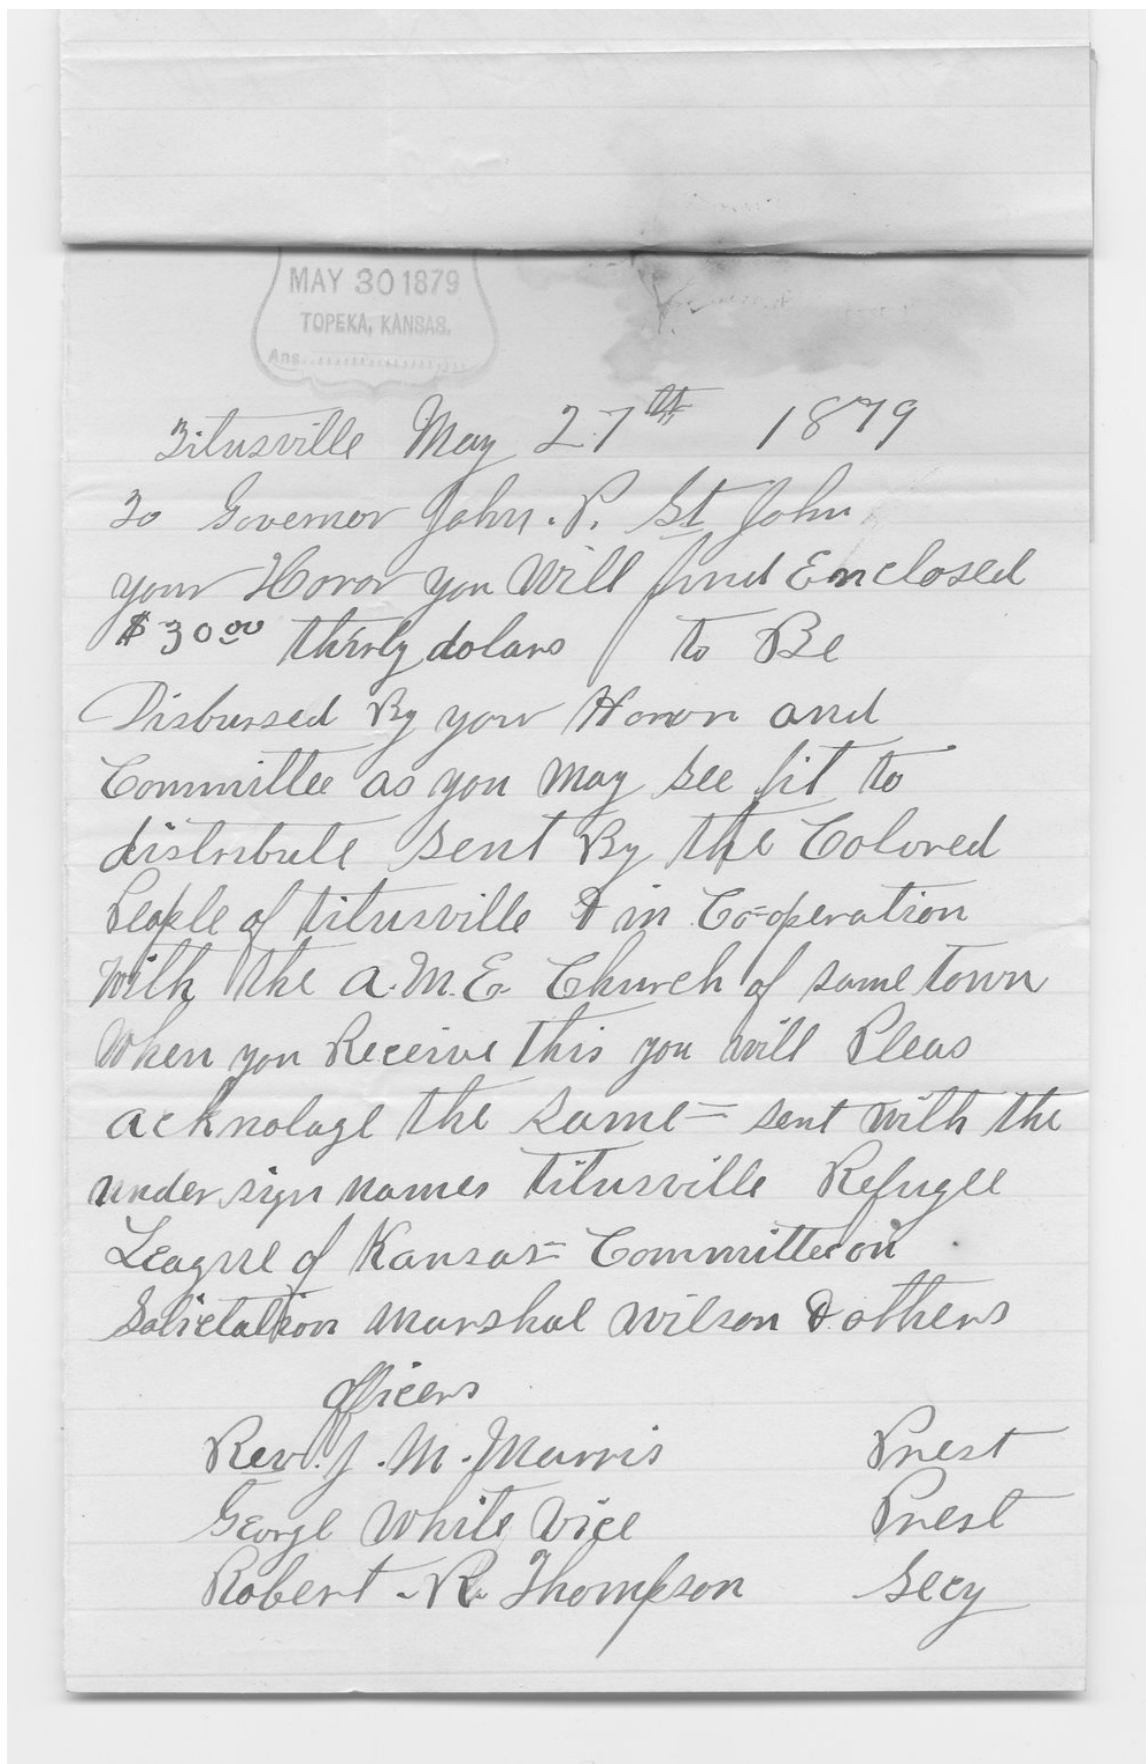 MAY 30 1879
TOPEKA, KANSAS.
Ans.
Titusville May 27th 1879
To Governor John. P. St John
your Honor you Will find Enclosed
$30.00 thirty dolars to Be
Disbursed By your Honor and
Committee as you may see fit to
distribute sent By the Colored
People of titusville & in Co=operation
With the A.M.E. Church of same town
When you Receive this you will Pleas
acknolage the same= sent with the
under sign names titusville Refugee
League of Kansas= Committee on
Solicitation Marshal Wilson & others
officers
Rev. J. M. Morris Prest
George White Vice Prest
Robert. R. Thompson Secy